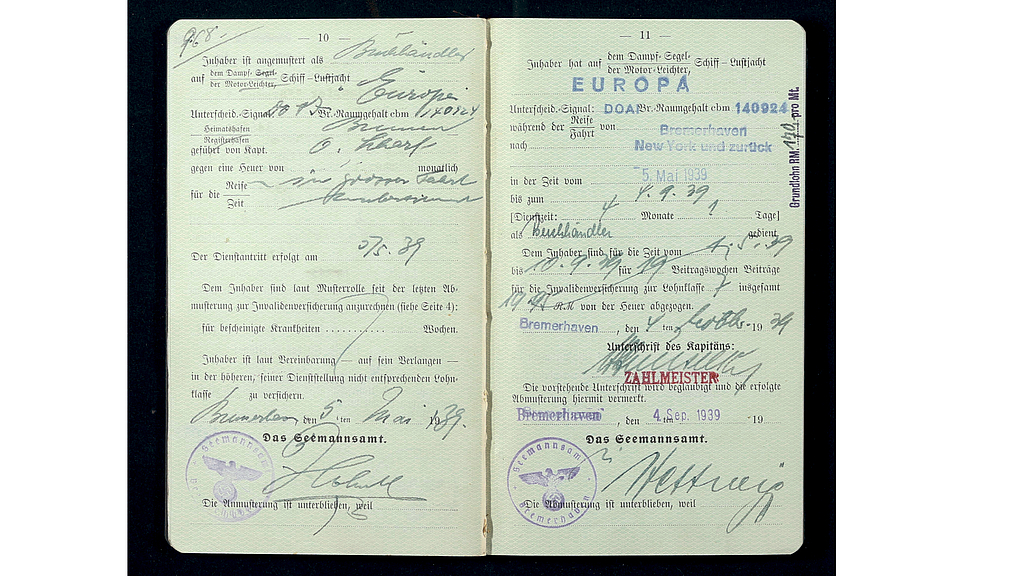 968.-
— 10 —
Inhaber ist angemustert als Buchhändler
auf dem Dampf-Segel-
der Motor-Leichter,
Schiff-Luftjacht
Europa
Unterscheid.-Signal Br.-Raumgehalt cbm 140924
Heimatshafen
Registerhafen
Bremen
geführt von Kapt. O. Scharf
gegen eine Heuer von monatlich
für die Reise
Zeit
grosser Fahrt
Der Dienstantritt erfolgt am 5/5.39
Dem Inhaber sind laut Musterrolle seit der letzten Ab-
musterung zur Invalidenversicherung anzurechnen (siehe Seite 4):
für bescheinigte Krankheiten ........... Wochen.
Inhaber ist laut Vereinbarung — auf sein Verlangen —
in der höheren, seiner Dienststellung nicht entsprechenden Lohn-
klasse zu versichern.
Bremerhaven den 5 ten Mai 1939.
Das Seemannsamt.
Seemannsamt
Die Anmusterung ist unterblieben, weil
— 11 —
Inhaber hat auf dem Dampf-Segel-
der Motor-Leichter,
Schiff-Luftjacht
EUROPA
Unterscheid.-Signal: DOAI Br.-Raumgehalt cbm 140924
während der Reise
Fahrt
von Bremerhaven
nach New York und zurück
in der Zeit vom 5. Mai 1939
bis zum 4.9.39
[Dienstzeit: 4 Monate Tage]
als Buchhändler gedient.
Dem Inhaber sind für die Zeit vom 5.39
bis 10.9.39 für 19 Beitragswochen Beiträge
für die Invalidenversicherung zu Lohnklasse 7 insgesamt
RM von der Heuer abgezogen.
Bremerhaven, den 4 ten Septbr. 1939
Unterschrift des Kapitäns:
ZAHLMEISTER
Die vorstehende Unterschrift wird beglaubigt und die erfolgte
Abmusterung hiermit vermerkt.
Bremerhaven, den 4. Sep. 1939 ten 19
Das Seemannsamt.
Seemannsamt
Bremerhaven
Die Abmusterung ist unterblieben, weil
Grundlohn RM. 170 pro Mt.